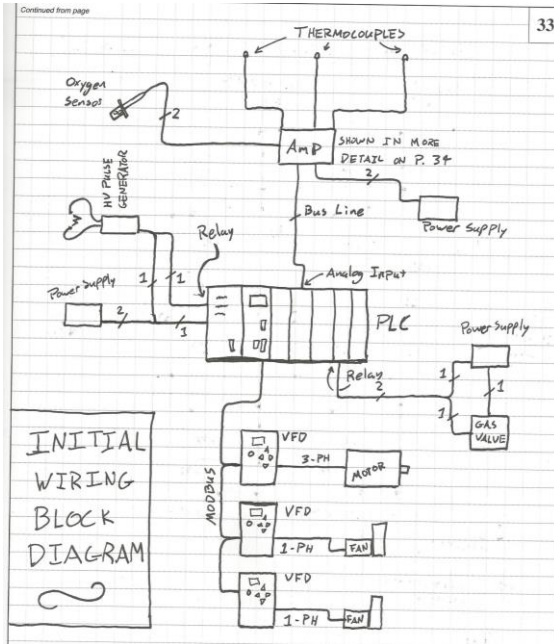 Continued from page
33
THERMOCOUPLES
Oxygen
Sensor
2
AMP
SHOWN IN MORE
DETAIL ON P. 34
2
HV PULSE
GENERATOR
Bus Line
Power Supply
Relay
1
1
Analog Input
Power Supply
2
1
PLC
Power Supply
Relay
2
1
1
1
GAS
VALVE
INITIAL
WIRING
BLOCK
DIAGRAM
MODBUS
VFD
3-PH
MOTOR
VFD
1-PH
FAN
VFD
1-PH
FAN